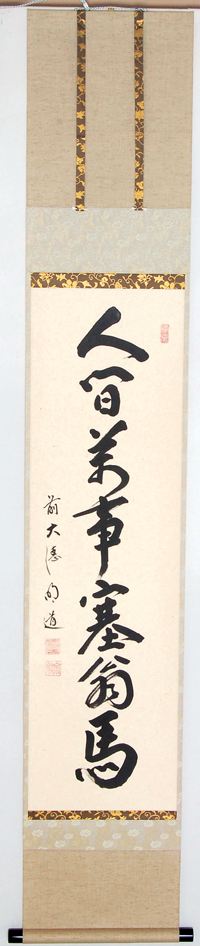 人間萬事塞翁馬
前大徳明道